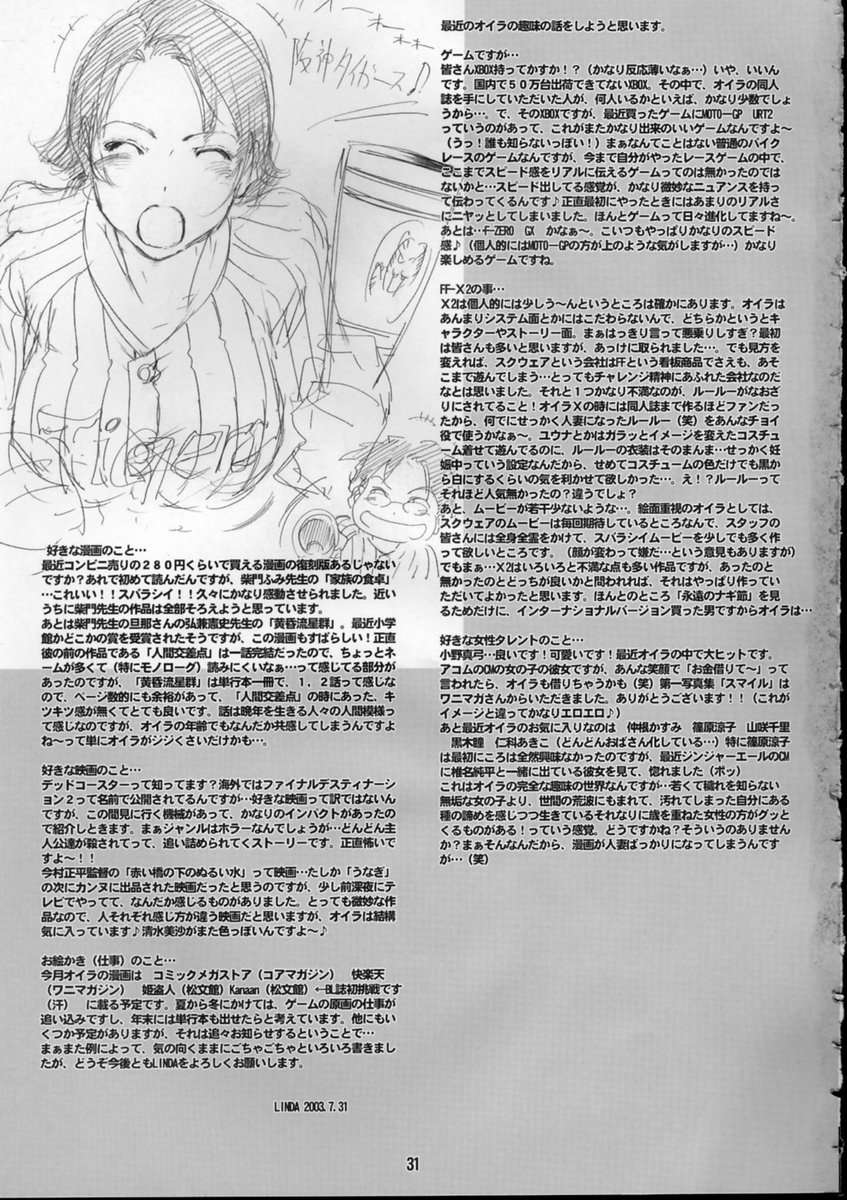 オーオーオー
阪神タイガース♪
Tigers
最近のオイラの趣味の話をしようと思います。
ゲームですが…
皆さんXBOX持ってかすか！？（かなり反応薄いなぁ…）いや、いいん
です。国内で５０万台出荷できてないXBOX。その中で、オイラの同人
誌を手にしていただいた人が、何人いるかといえば、かなり少数でしょ
うから…。で、そのXBOXですが、最近買ったゲームにMOTO－GP URT2
っていうのがあって、これがまたかなり出来のいいゲームなんですよ～
（うっ！誰も知らないっぽい！）まぁなんてことはない普通のバイク
レースのゲームなんですが、今まで自分がやったレースゲームの中で、
ここまでスピード感をリアルに伝えるゲームってのは無かったのでは
ないかと…スピード出してる感覚が、かなり微妙なニュアンスを持っ
て伝わってくるんです♪正直最初にやったときにはあまりのリアルさ
にニヤッとしてしまいました。ほんとゲームって日々進化してますね～。
あとは…F-ZERO GX かなぁ～。こいつもやっぱりかなりのスピード
感♪（個人的にはMOTO－GPの方が上のような気がしますが…）かなり
楽しめるゲームですね。
FF－X2の事…
X2は個人的には少しう～んというところは確かにあります。オイラは
あんまりシステム面とかにはこだわらないんで、どちらかというとキ
ャラクターやストーリー面。まぁはっきり言って悪乗りしすぎ？最初
は皆さんも多いと思いますが、あっけに取られました…。でも見方を
変えれば、スクウェアという会社はFFという看板商品でさえも、あそ
こまで遊んでしまう…とってもチャレンジ精神にあふれた会社なのだ
なとは思いました。それと１つかなり不満なのが、ルールーがなおざ
りにされてること！オイラXの時には同人誌まで作るほどファンだっ
たから、何でにせっかく人妻になったルールー（笑）をあんなチョイ
役で使うかなぁ～。ユウナとかはガラッとイメージを変えたコスチュ
ーム着せて遊んでるのに、ルールーの衣装はそのまんま…せっかく妊
娠中っていう設定なんだから、せめてコスチュームの色だけでも黒か
ら白にするくらいの気を利かせて欲しかった…。え！？ルールーって
それほど人気無かったの？違うでしょ？
あと、ムービーが若干少ないような…。絵面重視のオイラとしては、
スクウェアのムービーは毎回期待しているところなんで、スタッフの
皆さんには全身全霊をかけて、スバラシイムービーを少しでも多く作
って欲しいところです。（顔が変わって嫌だ…という意見もありますが）
でもまぁ…X2はいいろと不満な点も多い作品ですが、あったのと
無かったのとどっちが良いかと問われれば、それはやっぱり作ってい
ただいてよかったと思います。ほんとのところ「永遠のナギ節」を見
るためだけに、インターナショナルバージョン買った男ですからオイラは…
好きな女性タレントのこと…
小野真弓…良いです！可愛いです！最近オイラの中で大ヒットです。
アコムのCMの女の子の彼女ですが、あんな笑顔で「お金借りて～」って
言われたら、オイラも借りちゃうかも（笑）第一写真集「スマイル」は
ワニマガさんからいただきました。ありがとうございます！！（これが
イメージと違ってかなりエロエロ♪）
あと最近オイラのお気に入りなのは　仲根かすみ　篠原涼子　山咲千里
黒木瞳　仁科あきこ（どんどんおばさん化している…）特に篠原涼子
は最初にころは全然興味なかったのですが、最近ジンジャーエールのCM
に椎名純平と一緒に出ている彼女を見て、惚れました（ポッ）
これはオイラの完全な趣味の世界なんですが…若くて穢れを知らない
無垢な女の子より、世間の荒波にもまれて、汚れてしまった自分にある
種の諦めを感じつつ生きているそれなりに歳を重ねた女性の方がグッと
くるものがある！っていう感覚。どうですかね？そういうのありません
か？まぁそんなんだから、漫画が人妻ばっかりになってしまうんです
が…（笑）
好きな漫画のこと…
最近コンビニ売りの２８０円くらいで買える漫画の復刻版あるじゃない
ですか？あれで初めて読んだんですが、柴門ふみ先生の「家族の食卓」
…これいい！！スバラシイ！！久々にかなり感動させられました。近い
うちに柴門先生の作品は全部そろえようと思っています。
あとは柴門先生の旦那さんの弘兼憲史先生の「黄昏流星群」。最近小学
館かどこかの賞を受賞されたそうですが、この漫画もすばらしい！正直
彼の前の作品である「人間交差点」は一話完結だったので、ちょっとネ
ームが多くて（特にモノローグ）読みにくいなぁ…って感じてる部分が
あったのですが、「黄昏流星群」は単行本一冊で、１、２話って感じな
ので、ページ数的にも余裕があって、「人間交差点」の時にあった、キ
ツキツ感が無くてとても良いです。話は晩年を生きる人々の人間模様っ
て感じなのですが、オイラの年齢でもなんだか共感してしまうんですよ
ね～って単にオイラがジジくさいだけかも…。
好きな映画のこと…
デッドコースターって知ってます？海外ではファイナルデスティナーシ
ョン２って名前で公開されてるんですが…好きな映画って訳ではないん
ですが、この間見に行く機械があって、かなりのインパクトがあったの
で紹介しときます。まぁジャンルはホラーなんでしょうが…どんどん主
人公達が殺されてって、追い詰められてくストーリーです。正直怖いで
すよ～！！
今村正平監督の「赤い橋の下のぬるい水」って映画…たしか「うなぎ」
の次にカンヌに出品された映画だったと思うのですが、少し前深夜にテ
レビでやってて、なんだか感じるものがありました。とっても微妙な作
品なので、人それぞれ感じ方が違う映画だと思いますが、オイラは結構
気に入っています♪清水美沙がまた色っぽいんですよ～♪
お絵かき（仕事）のこと…
今月オイラの漫画は　コミックメガストア（コアマガジン）　快楽天
（ワニマガジン）　姫盗人（松文館）Kanaan（松文館）←BL誌初挑戦です
（汗）　に載る予定です。夏から冬にかけては、ゲームの原画の仕事が
追い込みですし、年末には単行本も出せたらと考えています。他にもい
くつか予定がありますが、それは追々お知らせするということで…
まぁまた例によって、気の向くままにごちゃごちゃといろいろ書きまし
たが、どうぞ今後ともLINDAをよろしくお願いします。
LINDA 2003.7.31
31